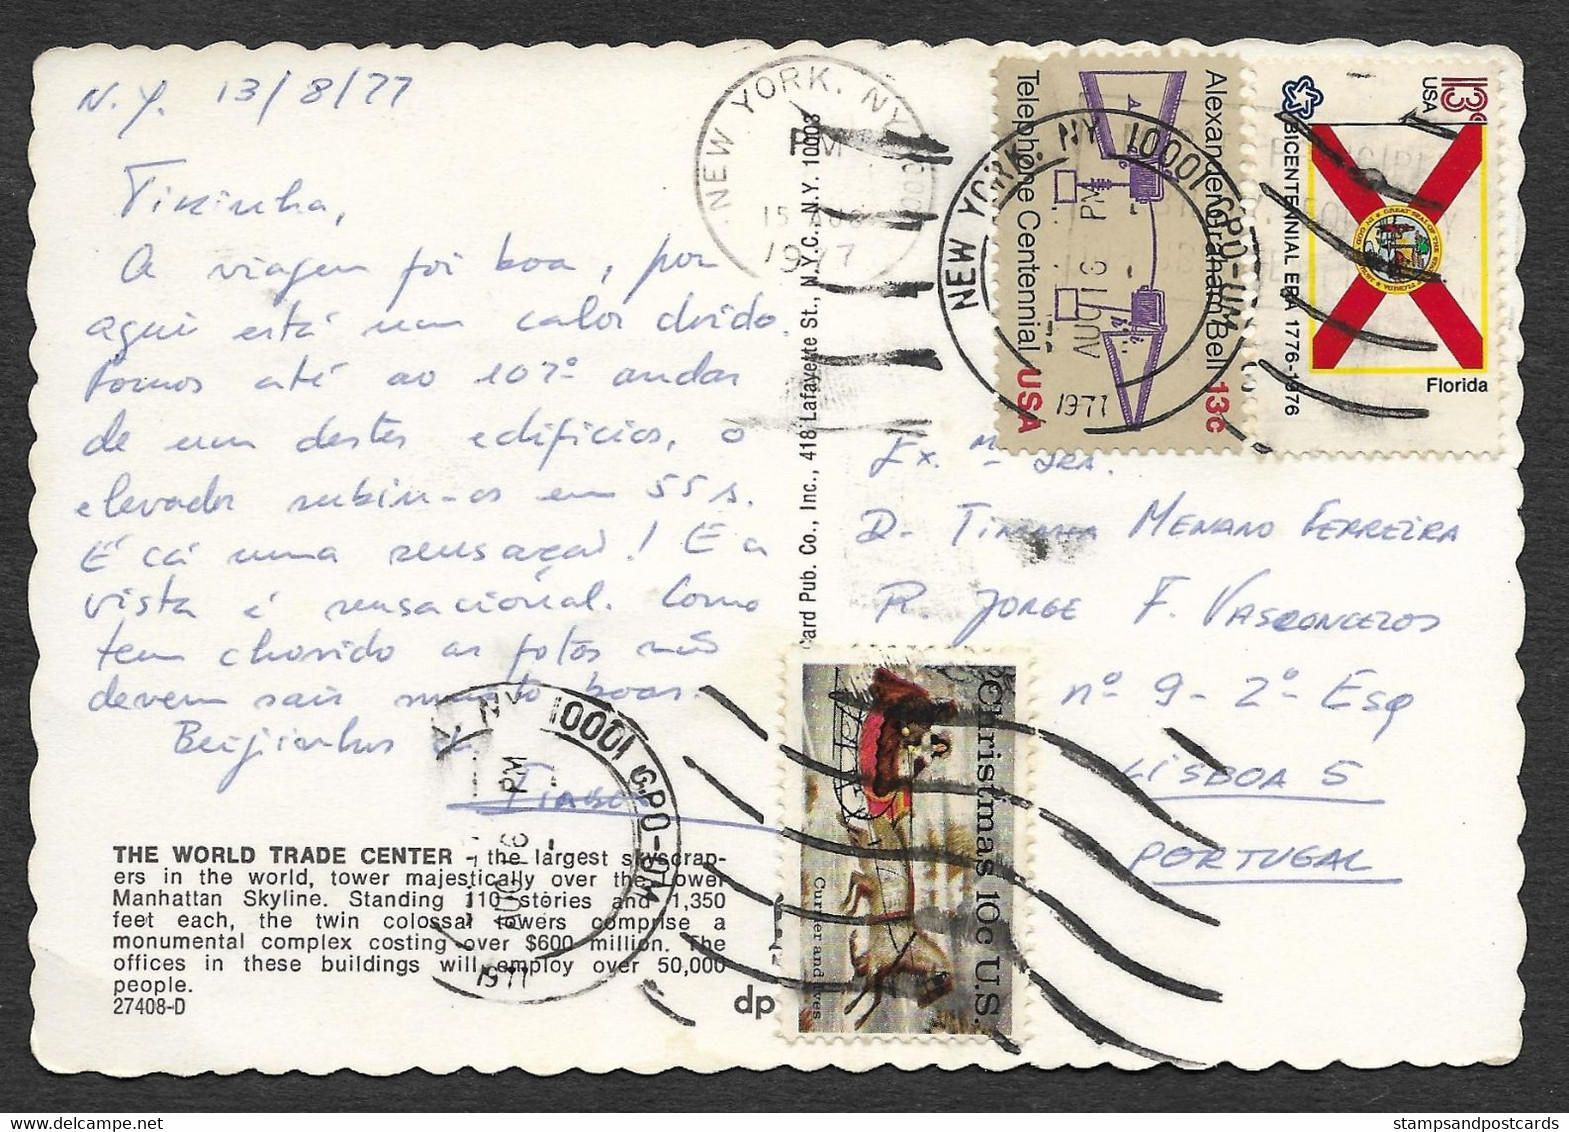 N.Y. 13/8/77
Tininha,
A viagem foi boa, por
aqui está um calor doido.
Fomos até ao 107º andar
de um destes edifícios, o
elevador subiu-os em 55 s.
É cá uma sensação! E a
vista é sensacional. Como
tem chovido as fotos não
devem sair muito boas.
Beijinhos
THE WORLD TRADE CENTER - the largest skyscrap-
ers in the world, tower majestically over the Lower
Manhattan Skyline. Standing 110 stories and 1,350
feet each, the twin colossal towers comprise a
monumental complex costing over $600 million. The
offices in these buildings will employ over 50,000
people.
27408-D
dp
Card Pub. Co., Inc., 418 Lafayette St., N.Y.C., N.Y. 10003
NEW YORK, NY
PM
15 AUG
1977
NEW YORK, NY 10001 GPO-UM
PM
AUG 13
1977
Alexander Graham Bell 13c
Telephone Centennial USA
13c
USA
BICENTENNIAL ERA 1776-1976
Florida
Ex.ma Sra.
D. Tininha Menano Ferreira
R. Jorge F. Vasconcelos
nº 9 - 2º Esq
Lisboa 5
Portugal
NY 10001 GPO-UM
PM
1977
Christmas 10c U.S.
Currier and Ives
stampsandpostcards